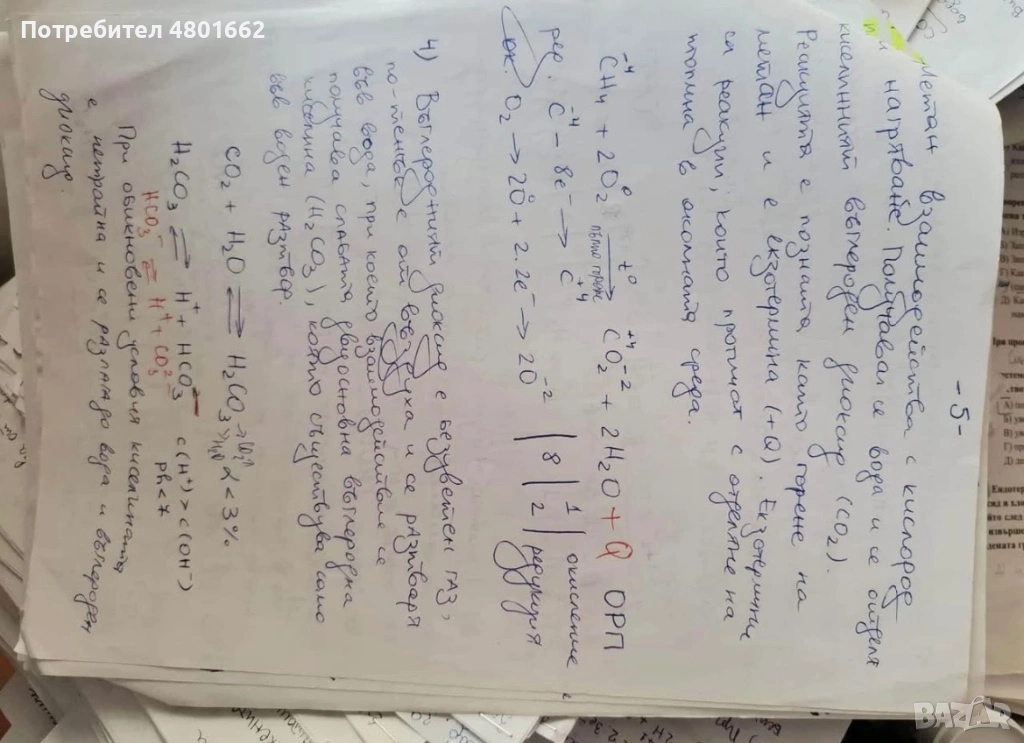 Потребител 4801662
- 5 -
Метан взаимодейства с кислород
нагряване. Получава се вода и се отделя
киселинният въглероден диоксид (CO₂).
Реакцията е позната като горене на
метан и е екзотермична (+Q). Екзотермични
са реакции, които протичат с отделяне на
топлина в околната среда.
CH₄⁻⁴ + 2O₂⁰ →(t⁰, пълно горене) C⁺⁴O₂⁻² + 2H₂O + Q ОРП
ред. C⁻⁴ - 8e⁻ → C⁺⁴ | 8 | 1 окисление
ок. O₂ → 2O⁰ + 2.2e⁻ → 2O⁻² | 2 | редукция
4) Въглеродният диоксид е безцветен газ,
по-тежък е от въздуха и се разтваря
във вода, при което взаимодействие се
получава слабата двуосновна въглеродна
киселина (H₂CO₃), която съществува само
във воден разтвор.
CO₂ + H₂O ⇌ H₂CO₃ α < 3%
H₂CO₃ ⇌ H⁺ + HCO₃⁻ c(H⁺) > c(OH⁻)
HCO₃⁻ ⇌ H⁺ + CO₃²⁻ pH < 7
При обикновени условия киселината
е нетрайна и се разлага до вода и въглероден
диоксид.
BAZAR